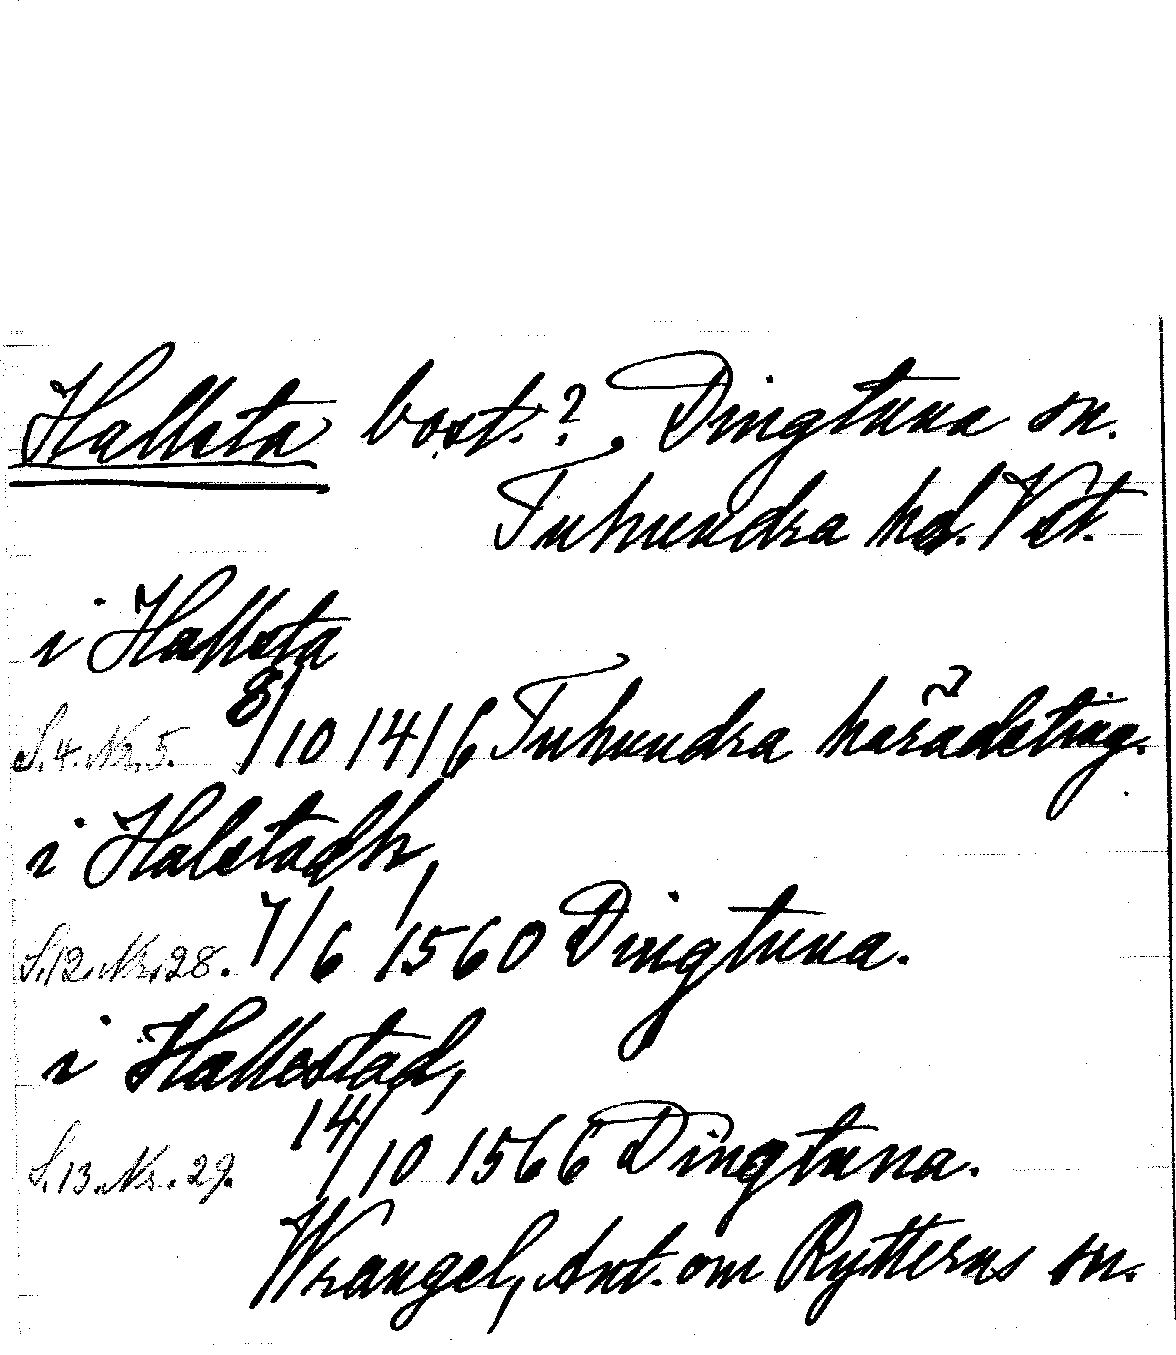 Hallsta bost.? Dingtuna sn.
Tuhundra hd. Vst.
i Hallsta
S. 4. Nr. 5. 8/10 1416 Tuhundra häradsting.
i Halstadh,
S. 12. Nr. 28. 7/6 1560 Dingtuna.
i Hallestad,
S. 13. Nr. 29. 14/10 1566 Dingtuna.
Wrangel, Ant. om Rytterns sn.